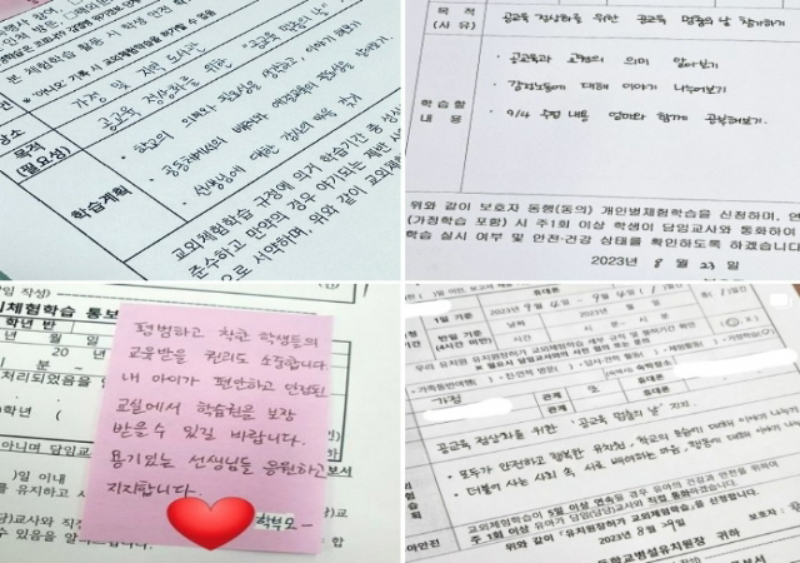 본 체험학습 활동 시 학생 안전
"아니오" 기록 시 교외체험학습을 허가할 수 없음
가정 및 지역 도서관
공교육 정상화를 위한 "공교육 멈춤의 날"
목적
(필요성)
학습계획
• 학교의 의미와 필요성을 생각하고, 이야기 해보기
• 공동체에서의 배려와
• 선생님에 대한 감사의 마음 갖기
교외체험학습 규정에 의거 학습기간 중 성실
준수하고 만약의 경우 야기되는 제반
으로 서약하며, 위와 같이 교외체
목 적
(사 유)
공교육 정상화를 위한 공교육 멈춤의 날 참가하기
학 습 할
내 용
• 공교육과 교권의 의미 알아보기
• 대해 이야기 나누어보기
• 9/4 주말 내용 엄마와 함께 공부해보기.
위와 같이 보호자 동행(동의) 개인별체험학습을 신청하며, 연
(가정학습 포함) 시 주1회 이상 학생이 담임교사와 통화하여
학습 실시 여부 및 안전·건강 상태를 확인하도록 하겠습니다
2023년 8 월 23 일
임 작성)
외체험학습 통보
학년 반
년 월 일
20 년
분 ~
처리되었음을
학년 (
아니며 담임교
)일 이내
를 유지하고
당)교사와 직접
수 있음을 알
평범하고 착한 학생들의
교육받을 권리도 소중합니다.
내 아이가 편안하고 안정된
교실에서 학습권을 보장
받을수 있길 바랍니다.
용기있는 선생님들 응원하고
지지합니다.
학부모 -
보서
휴대폰
1일 기준
2023년 9월 4일 ~ 9월 4일 ( 1 )일간
반일 기준
(4시간 미만)
날짜
시간
년 월 일
시 분 ~ 시 분
가정
관계
관계
모
휴대폰
휴대폰
공교육 정상화를 위한 '공교육 멈춤의 날' 지지.
• 모두가 안전하고 행복한 유치원, 학교의 모습에 대해 이야기 나누기
• 더불어 사는 사회 속 서로 배려하는 마음, 행동에 대해 이야기 나누
교외체험학습이 5일 이상 연속될 경우 유아의 건강과 안전을 위하여
주 1회 이상 유아가 담임(담당)교사와 직접 통화하겠습니다.
위와 같이 「유치원장허가 교외체험학습」을 신청합니다.
2023년 8월 29일
보호자 :
등학교병설유치원장 귀하